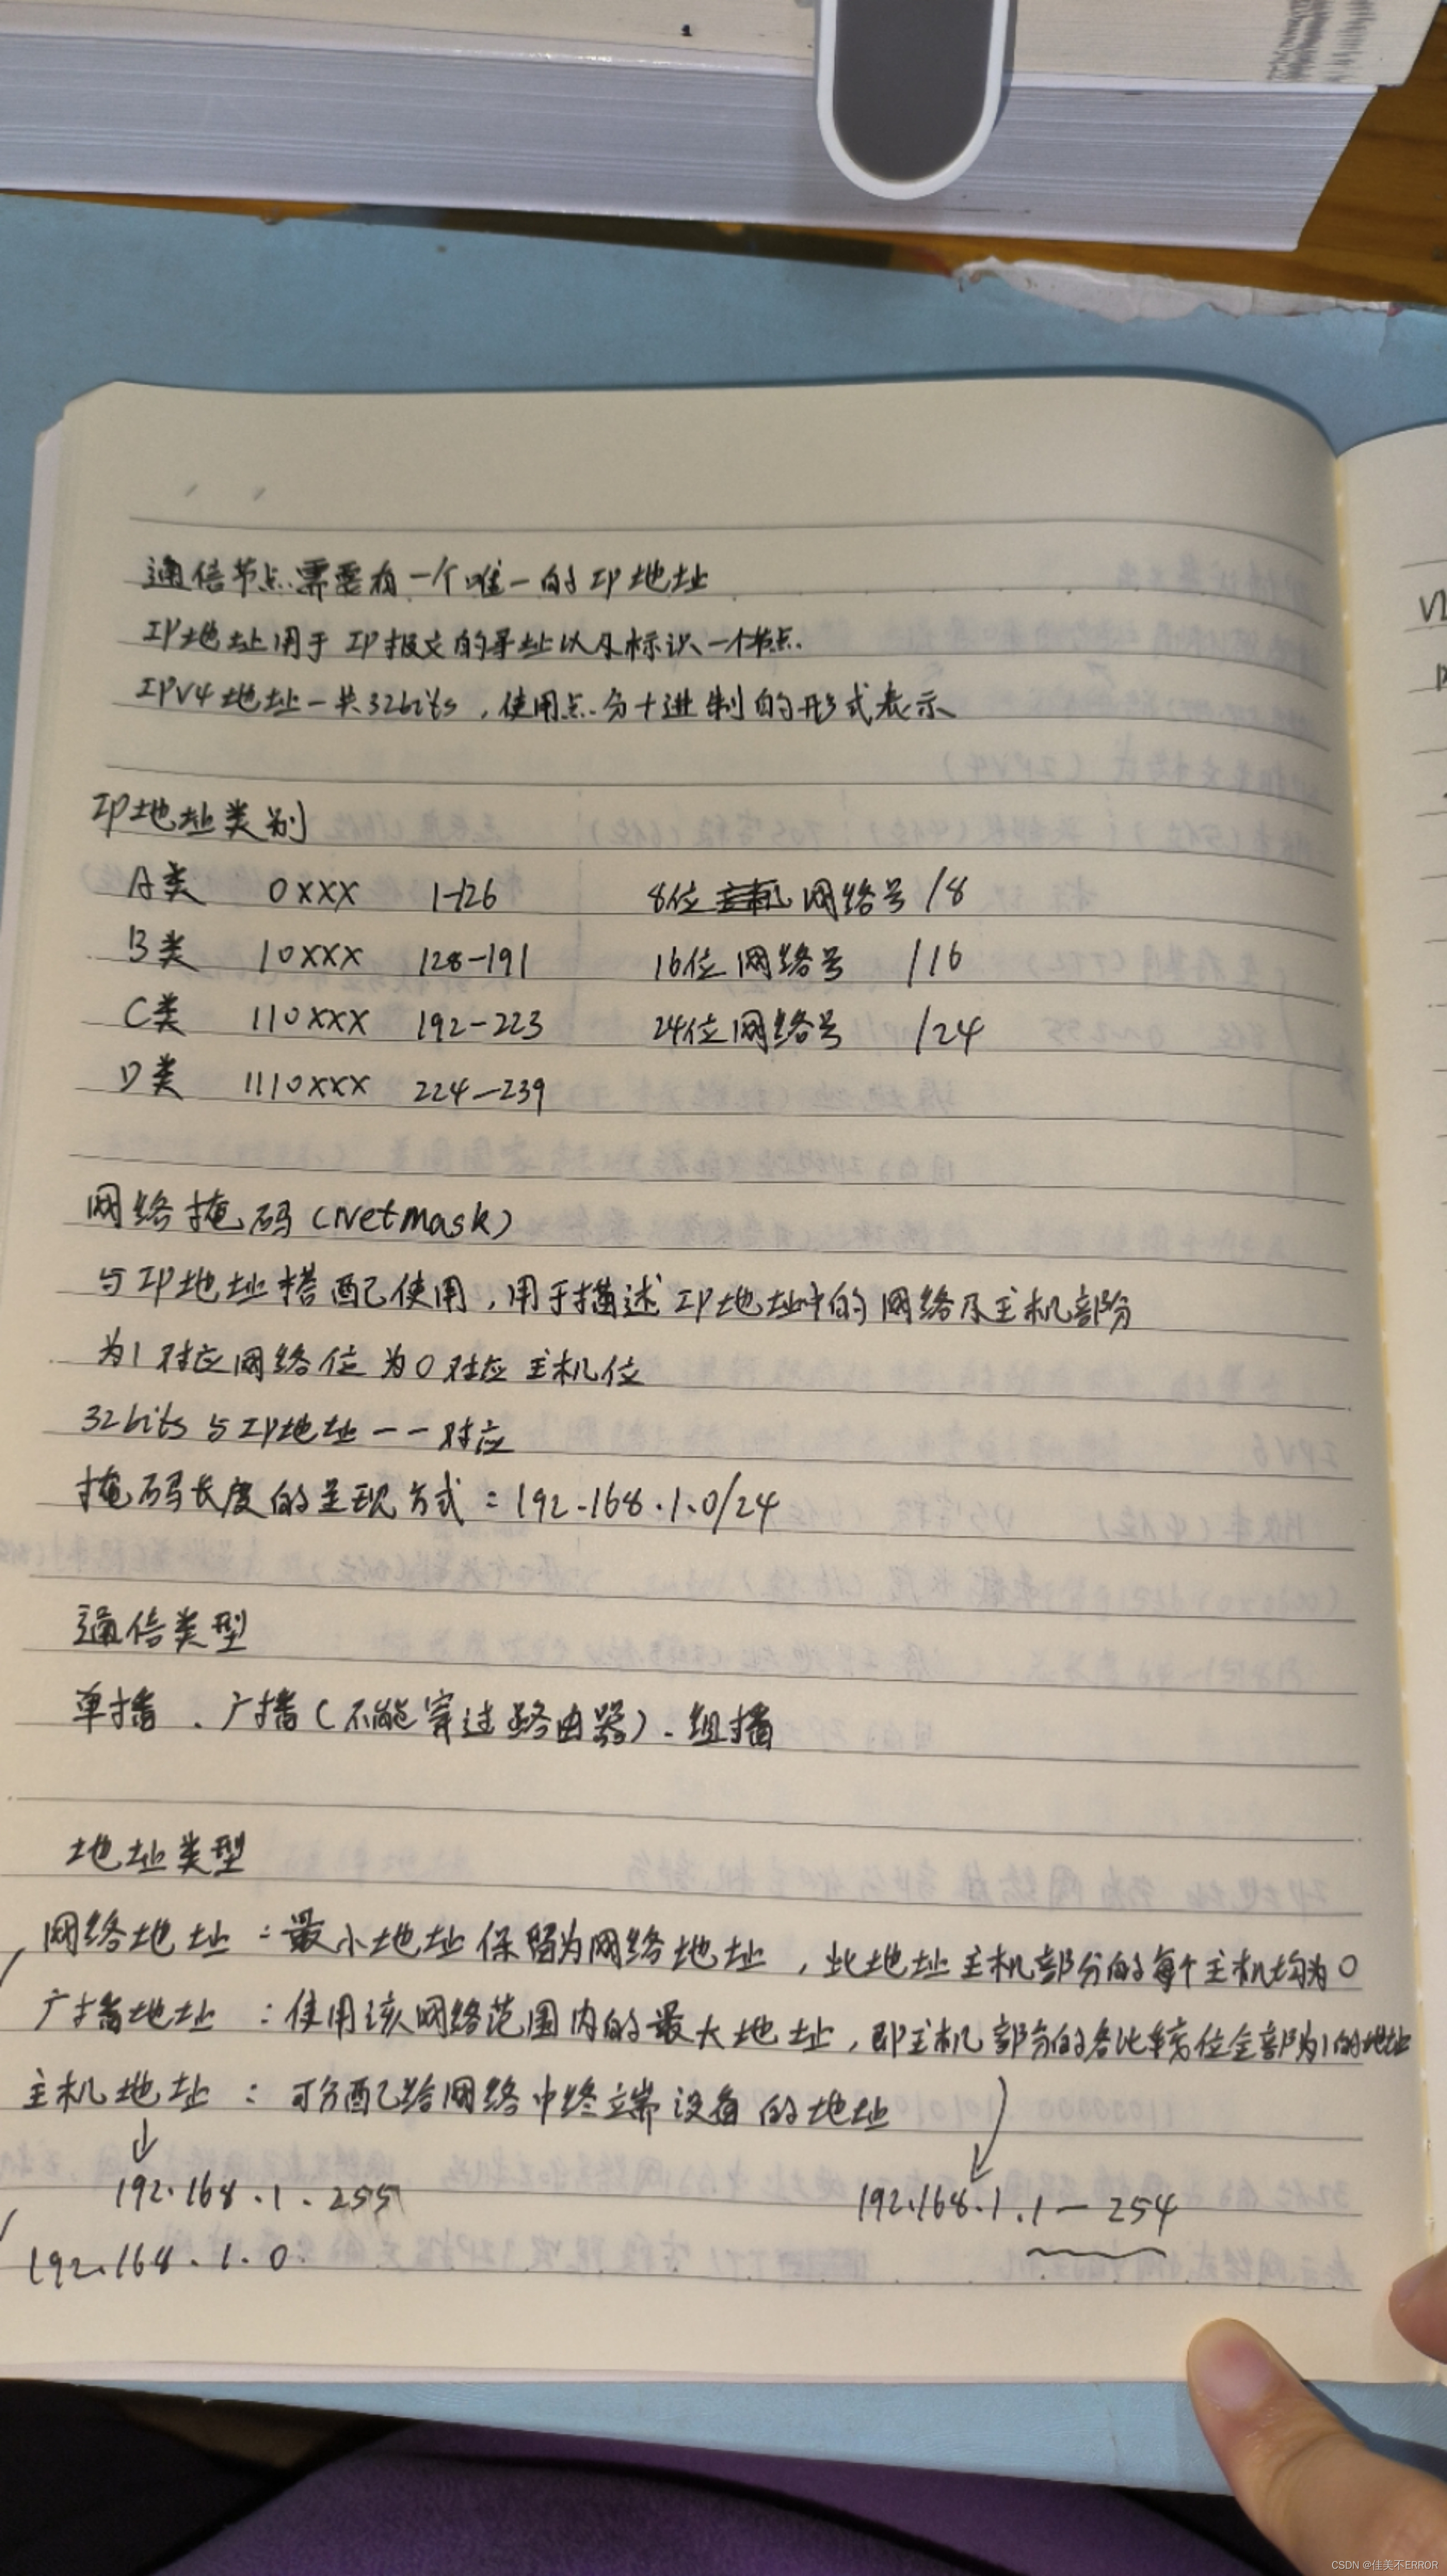 通信节点需要有一个唯一的IP地址
IP地址用于IP报文的寻址以及标识一个节点.
IPV4地址一共32bits,使用点分十进制的形式表示
IP地址类别
A类 0XXX 1-126 8位 网络号 /8
B类 10XXX 128-191 16位网络号 /16
C类 110XXX 192-223 24位网络号 /24
D类 1110XXX 224-239
网络掩码(Netmask)
与IP地址搭配使用,用于描述IP地址中的网络及主机部分
为1对应网络位为0对应主机位
32bits与IP地址一一对应
掩码长度的呈现方式:192.168.1.0/24
通信类型
单播、广播(不能穿过路由器)、组播
地址类型
网络地址:最小地址保留为网络地址,此地址主机部分的每个主机均为0
广播地址:使用该网络范围内的最大地址,即主机部分的各比特位全部为1的地址
主机地址:可分配给网络中终端设备的地址
192.168.1.255
192.168.1.1-254
192.168.1.0
CSDN @佳美不ERROR